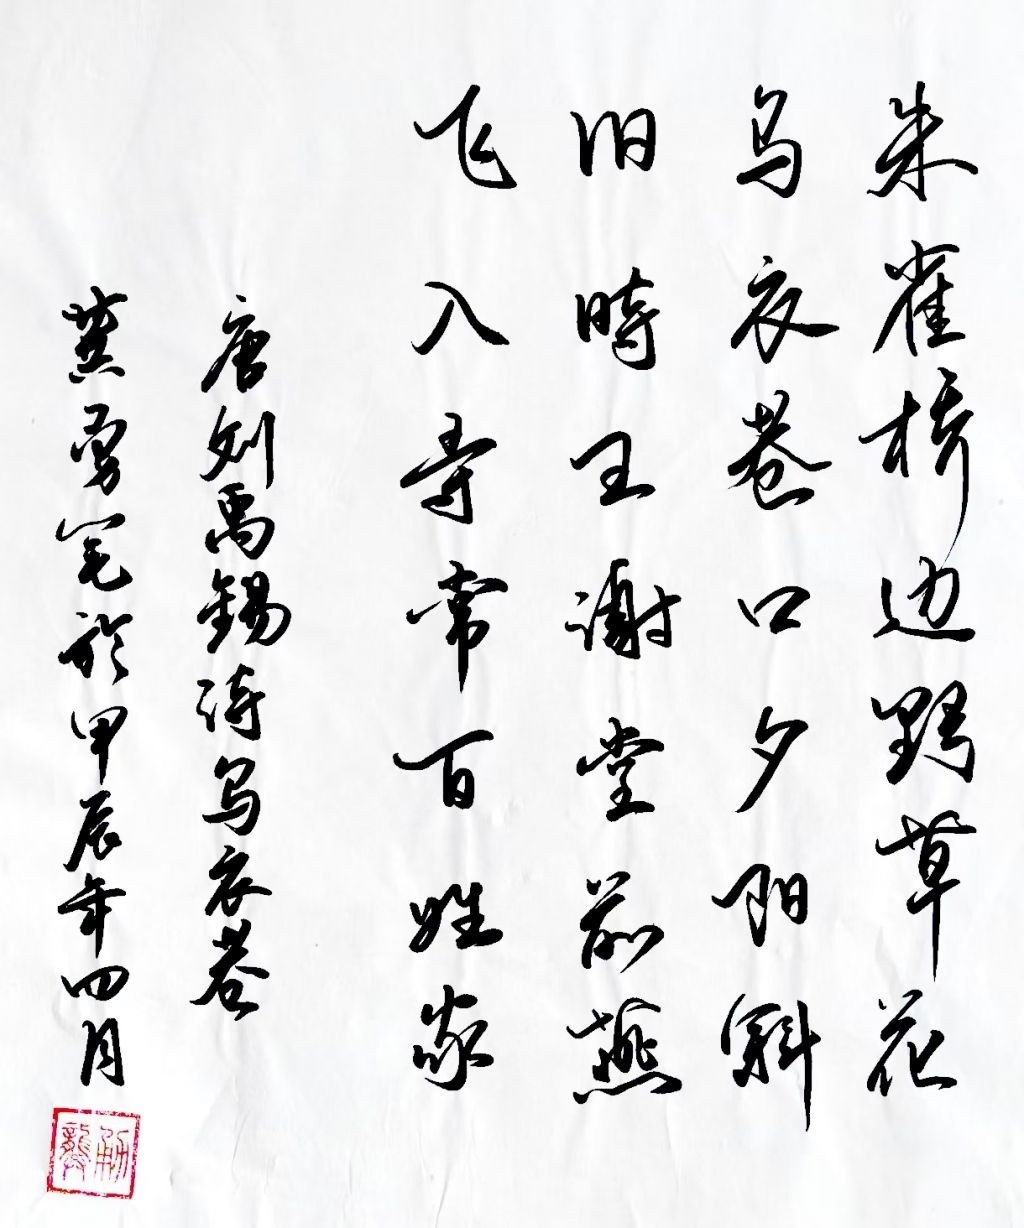 朱雀桥边野草花
乌衣巷口夕阳斜
旧時王謝堂前燕
飞入寻常百姓家
唐刘禹錫诗乌衣巷
龚勇笔於甲辰年四月